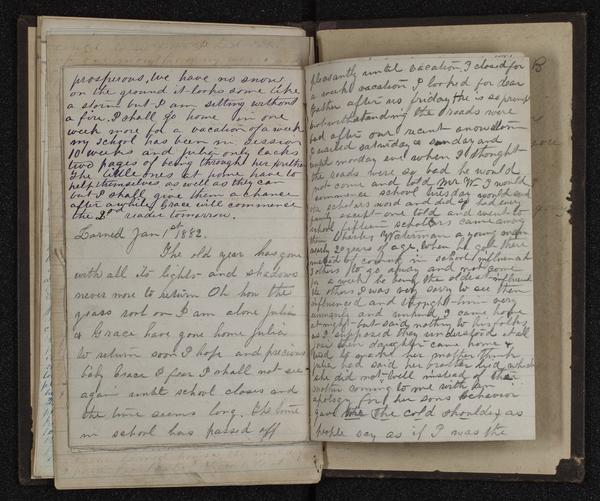 prosperous, we have no snow
on the ground it looks some like
a storm but I am setting without
a fire. I shall go home in one
week more for a vacation of a week
my school has been in session
10 weeks and Julia only lacks
two pages of being through her
The little ones at home have to
help themselves as well as they can
but I shall give them a chance
after awhile, Grace will commence
the 2nd reader tomorrow.
Larned Jan 1st 1882.
The old year has gone
with all its lights and shadows
never more to return Oh how the
years roll on I am alone Julia
& Grace have gone home Julia
to return soon I hope and precious
baby Grace I fear I shall not see
again until school closes and
the time seems long. The time
in school has passed off
pleasantly until vacation. I closed for
a weeks vacation I looked for dear
father after us friday he is so prompt
notwithstanding the roads were
bad after our recent snowstorm
I waited saturday & sunday and
until monday eve when I thought
the roads were so bad he would
not come and told Mr W. I would
commence school tuesday would send
the scholars word and did so and every
family except one told and went to
school fifteen scholars came away
them Charles Waterman a young man
nearly 20 years of age, when he got there
instead of coming in school influenced
3 others to go away and not come
for a week he being the oldest influenced
the others I was very sorry to see them
influenced and thought him very
unmanly and unkind I came home
at night but said nothing to his folks
as I supposed they understood it all
their daughter came home &
said he made her mother think
Julia had said her brother lied which
she did not. Well instead of the
mother coming to me with an
apology for her sons behavior
gave me the cold shoulder as
people say as if I was the